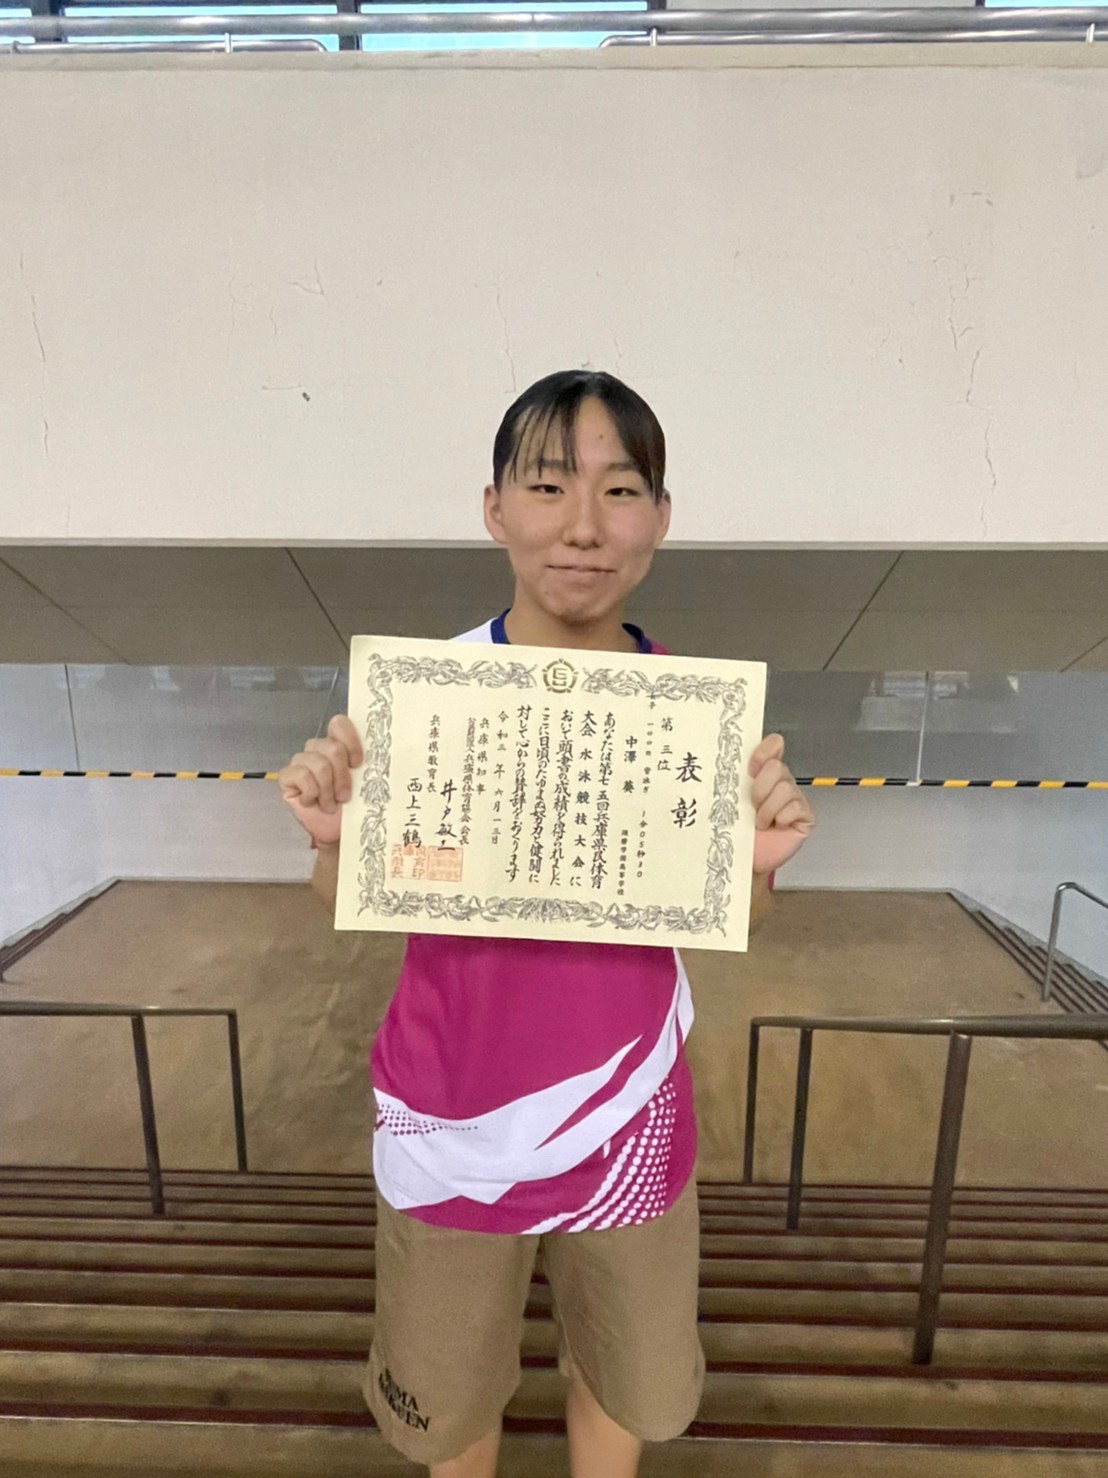 表彰
第三位
女子 一〇〇m 背泳ぎ 一分05秒30
中澤 葵 須磨学園高等学校
あなたは第七五回兵庫県民体育
大会水泳競技大会に
おいて頭書の成績を得られました
ここに日頃のたゆまぬ努力と健闘に
対して心からの賛辞をおくります
令和三年六月一三日
兵庫県知事
公益財団法人兵庫県体育協会会長
井戸敏三
兵庫県教育長
西上三鶴
SUMA
GAKUEN